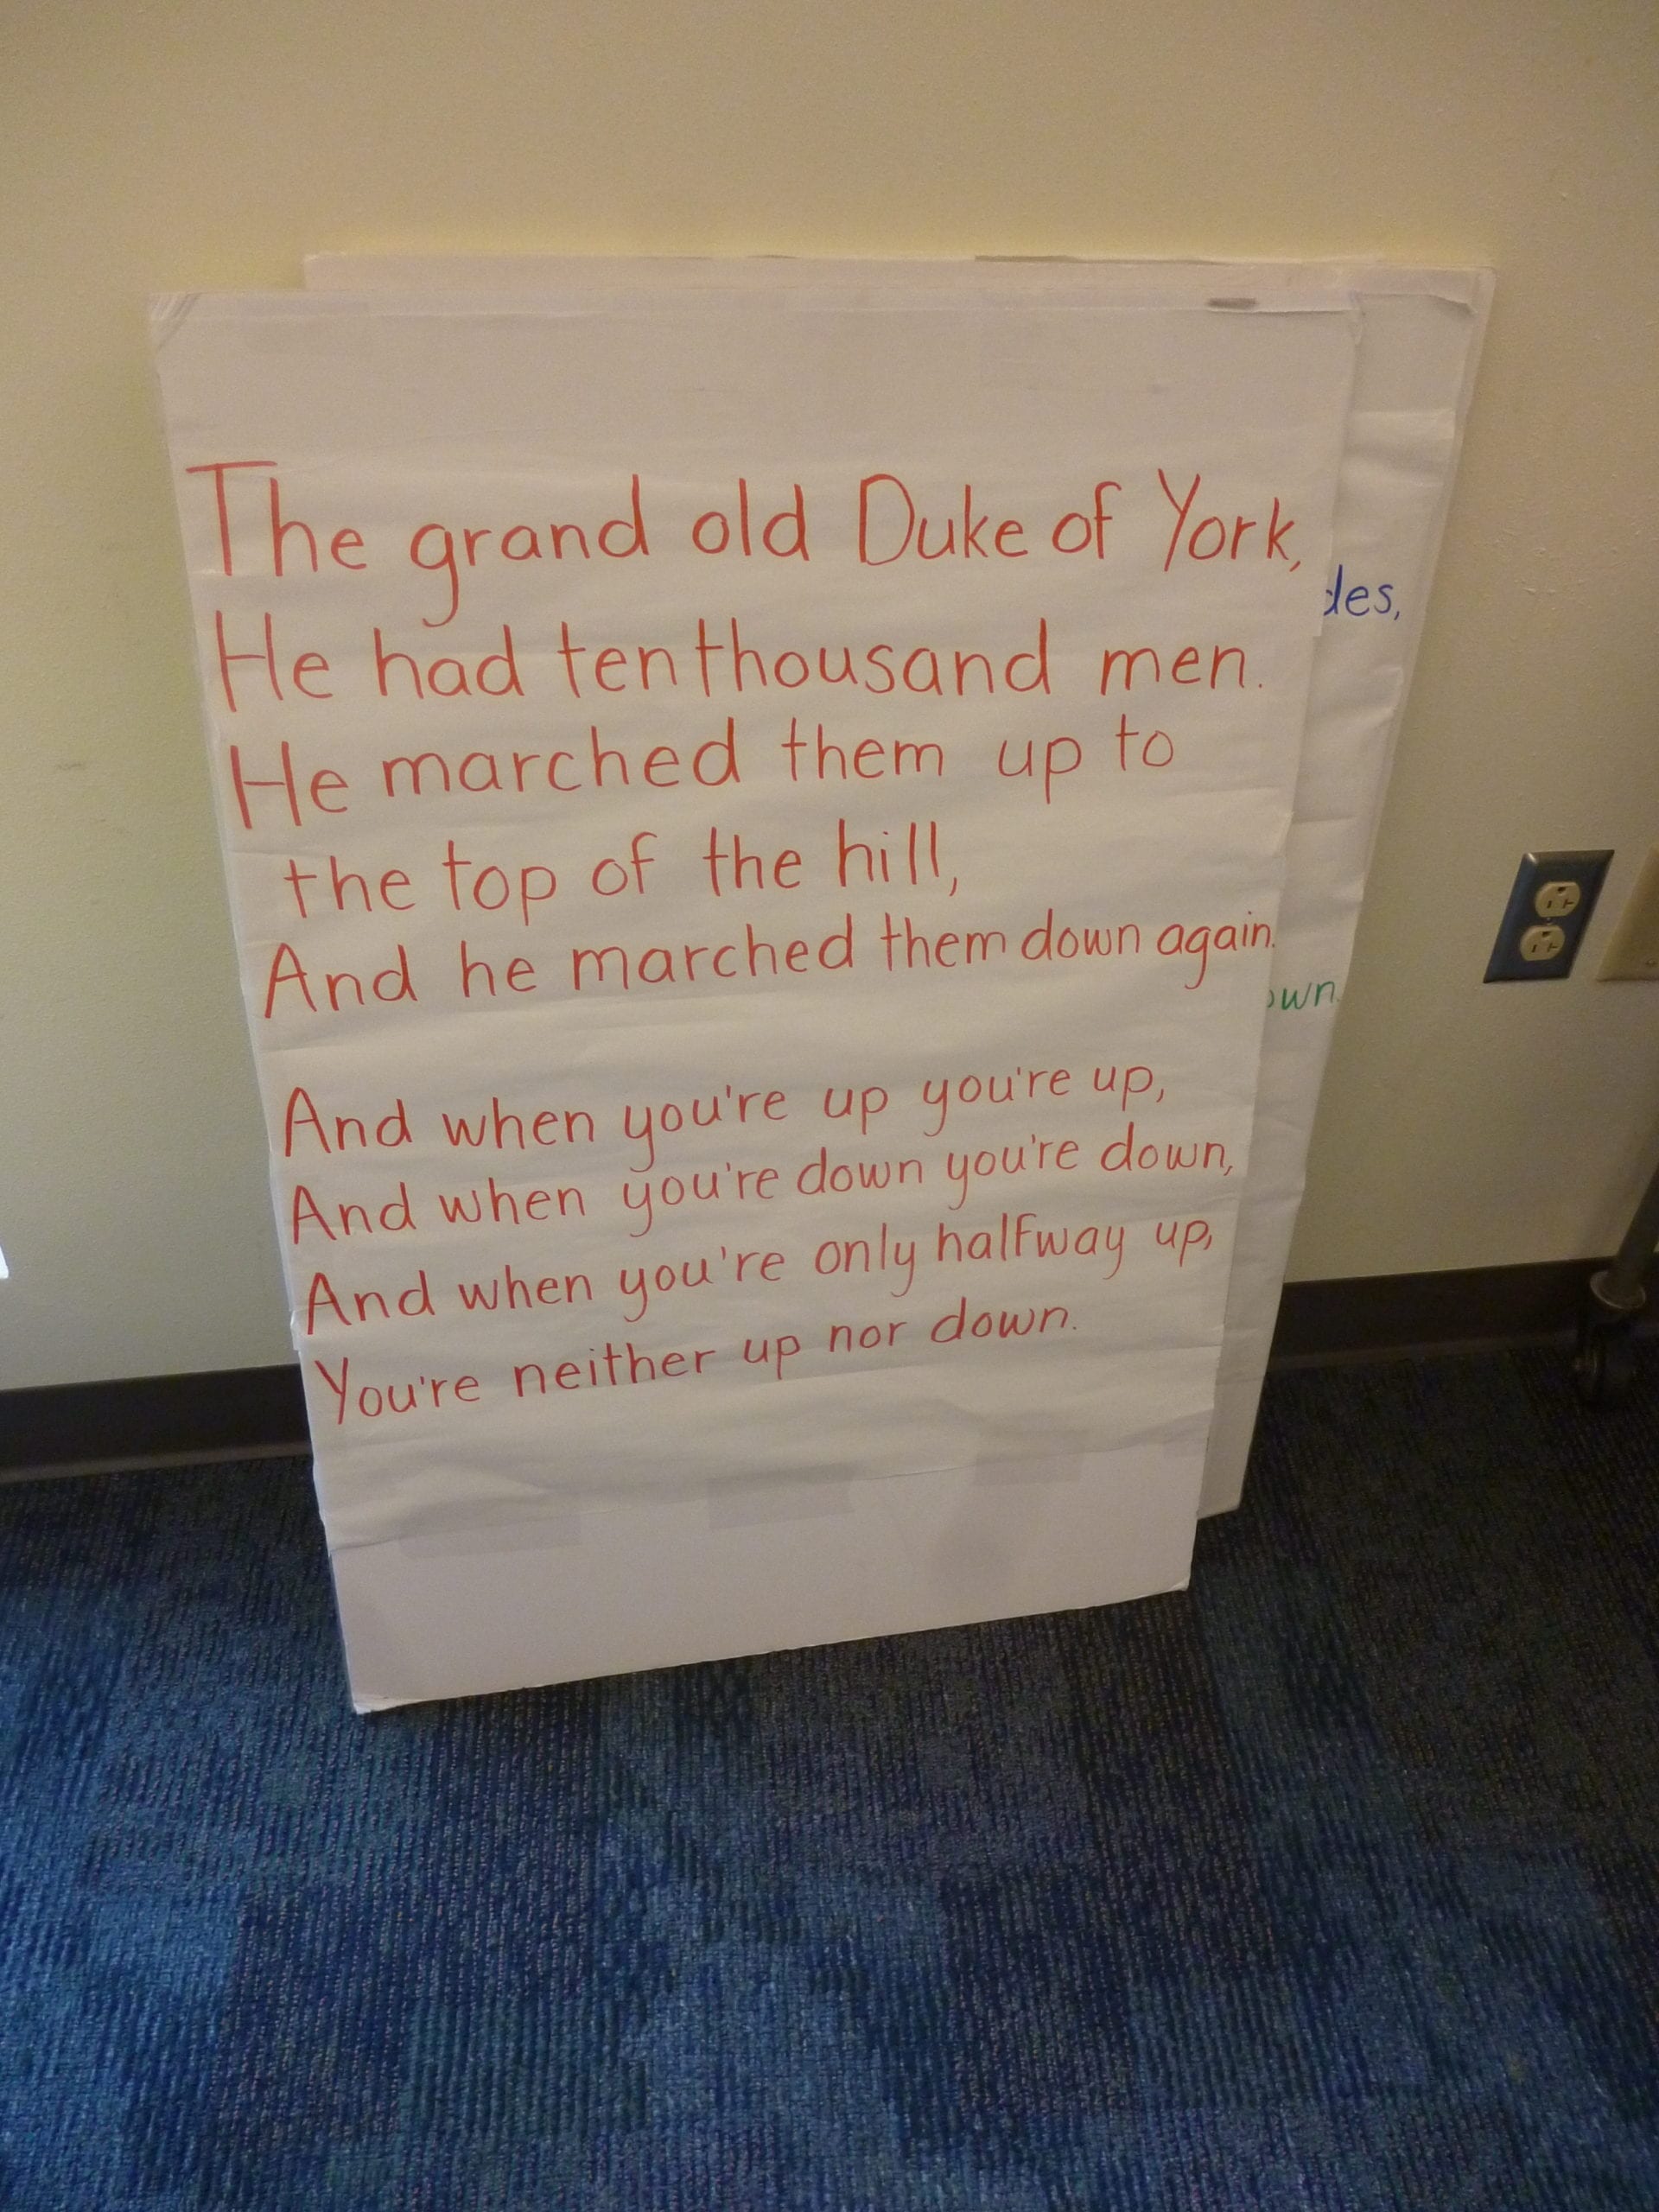 The grand old Duke of York,
He had ten thousand men.
He marched them up to
the top of the hill,
And he marched them down again.
And when you're up you're up,
And when you're down you're down,
And when you're only halfway up,
You're neither up nor down.
des,
own.